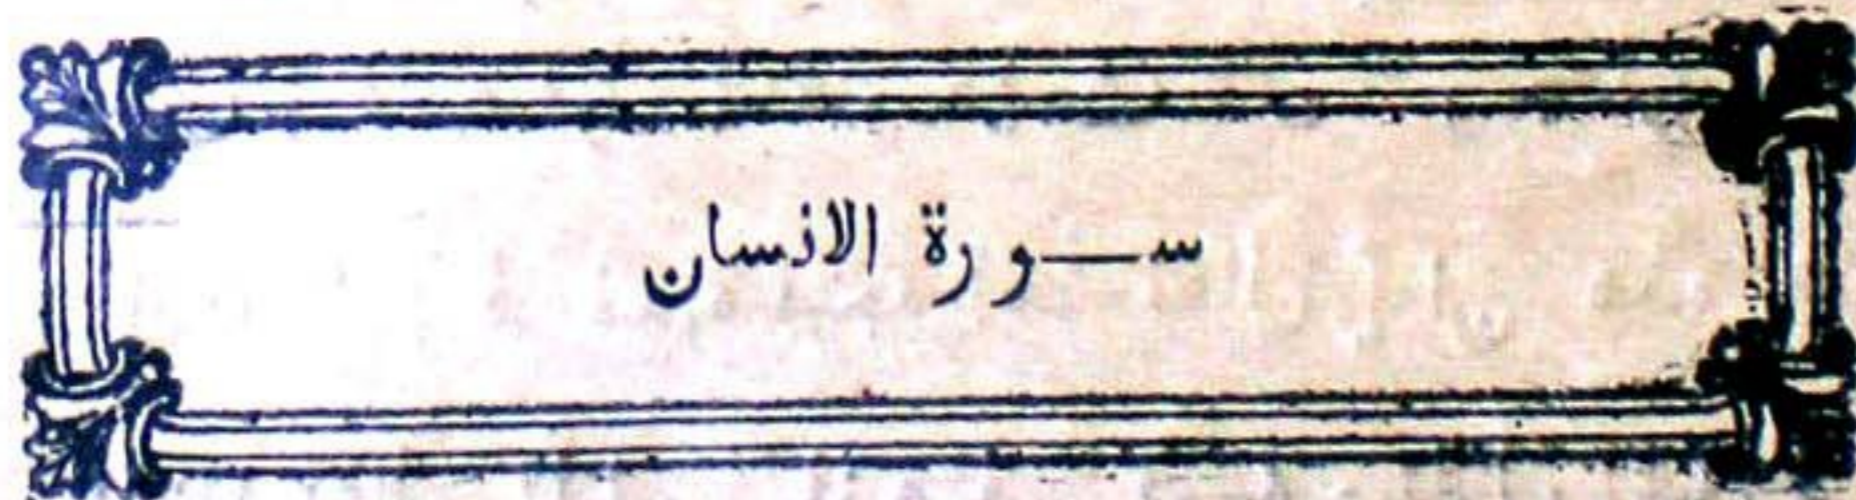 ســورة الانسان